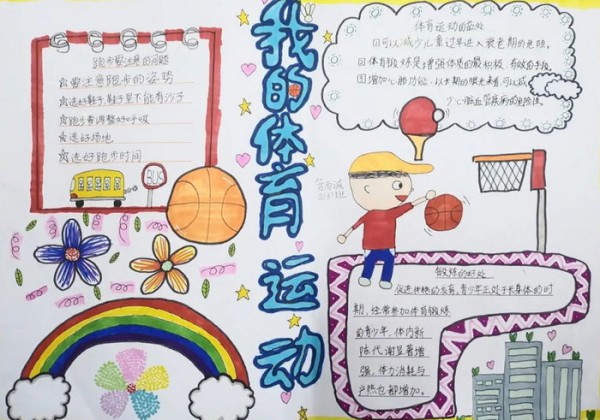 我的体育运动
跑步要注意的问题
☆要注意跑步的姿势
☆选好鞋子,鞋子里不能有沙子
☆跑步要调整好呼吸
☆选好场地
☆选好跑步时间
BUS
体育运动的益处
1.可以减少儿童过早进入衰老期的危险。
2.体育锻炼是增强体质的最积极、有效的手段。
3.增加心肺功能,以长期的眼光来看,可以减
少心脑血管疾病的危险性。
锻炼的好处
促进体格的发育,青少年正处于长身体的时
期,经常参加体育锻炼
的青少年,体内新
陈代谢显著增
强,体力消耗与
产热也都增加。